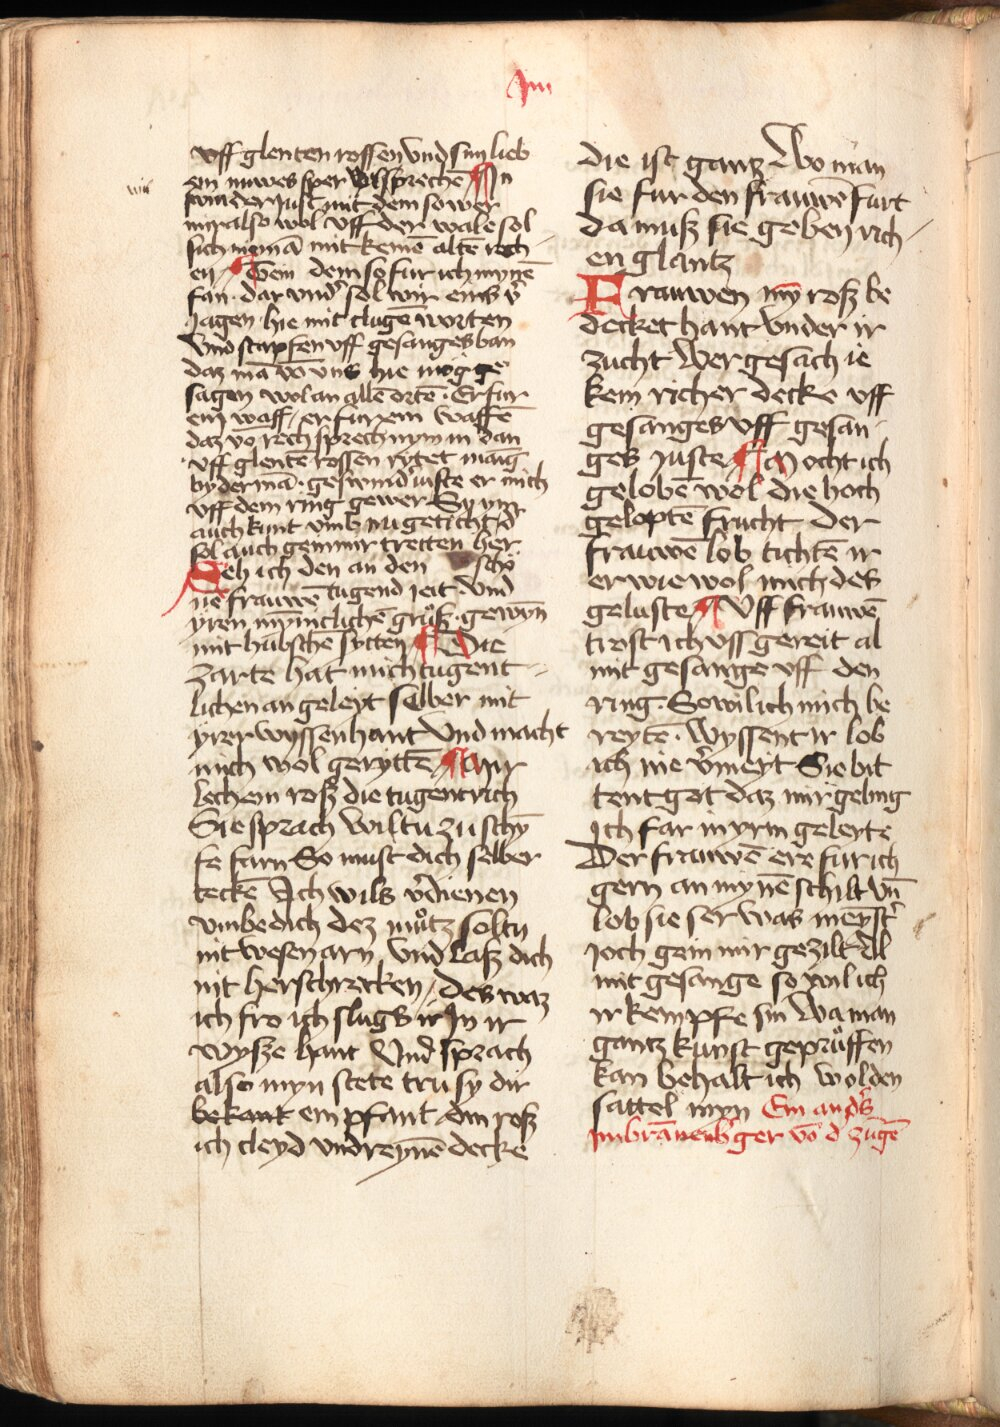 Jm
vff glenten rossen vnd sim lieb
ein nuwes sper volsprechē Jn
swinder Just mit dem so wer
mir also wol vff der wale sol
sich niemā mit kemē altē rech
en Gein dem so fur ich mynē
fan . dar vnd' sol wir eins v'
Jagen . hie mit cluge worten
vnd stapfen vff gesanges ban
daz mā vō vns hie mögge
sagen wol an allē ortē . Er fur
ein waff / er fur ein waffē
daz vō rech sprech nym in dan
vff glentē rossen rytet manig
bydermā . geswind iuste er mich
vff dem ring gewer Sy ymr
auch kunt vmb nu geticht d'
sol auch gein mir tretten her
Seh ich den an den schö
ne frauwē tugend jeit . vnd
yren mynclichē gruß . gewyn
mit hubschē sytten Die
zarte hat mich tugent
lichen an geleyt selber mit
yrer wyssen hant vnd macht
mich wol gerytte Mir
lech ein roß die tugentrich
Sie sprach wiltu zu schym
fe farn So must dich selber
teckē Ich wils v'dienen
vmbe dich dez mutz soltu
nit wesen arn vnd laß dich
nit herschrecken / des waz
ich fro ich slugs ir Jn ir
wysze hant Vnd sprach
also myn stete tru sy dir
bekant ein pfant din roß
ich cleyd vnd reynē decke
die ist gantz Wo man
sie fur den frauwē furt
da muß sie geben rich
en glantz
Frauwen my roß be
decket hant vnder ir
zucht Wer gesach ie
kein richer decke vff
gesanges vff gesan
ges Juste Mocht ich
gelobē wol die hoch
geloptē frucht der
frauwē lob tichtē ir
er wie wol mich des
geluste Vff frauwē
trost ich vss gereit al
mit gesange vff den
ring . So wil ich mich be
reytē . Wyssent ir lob
ich nie v'meyt Sie bit
tent got daz mir geling
Ich far in yrm geleyte
Der frauwē ere fur ich
gern an mynē schilt vn̄
lob sie ser was meynst'
Joch gein mir gezilt Al
mit gesange so wil ich
ir kempfe sin Wa man
gantz kunst gepruffen
kan behalt ich wol den
sattel myn Ein and's
im brānenb'ger vō d' zugē